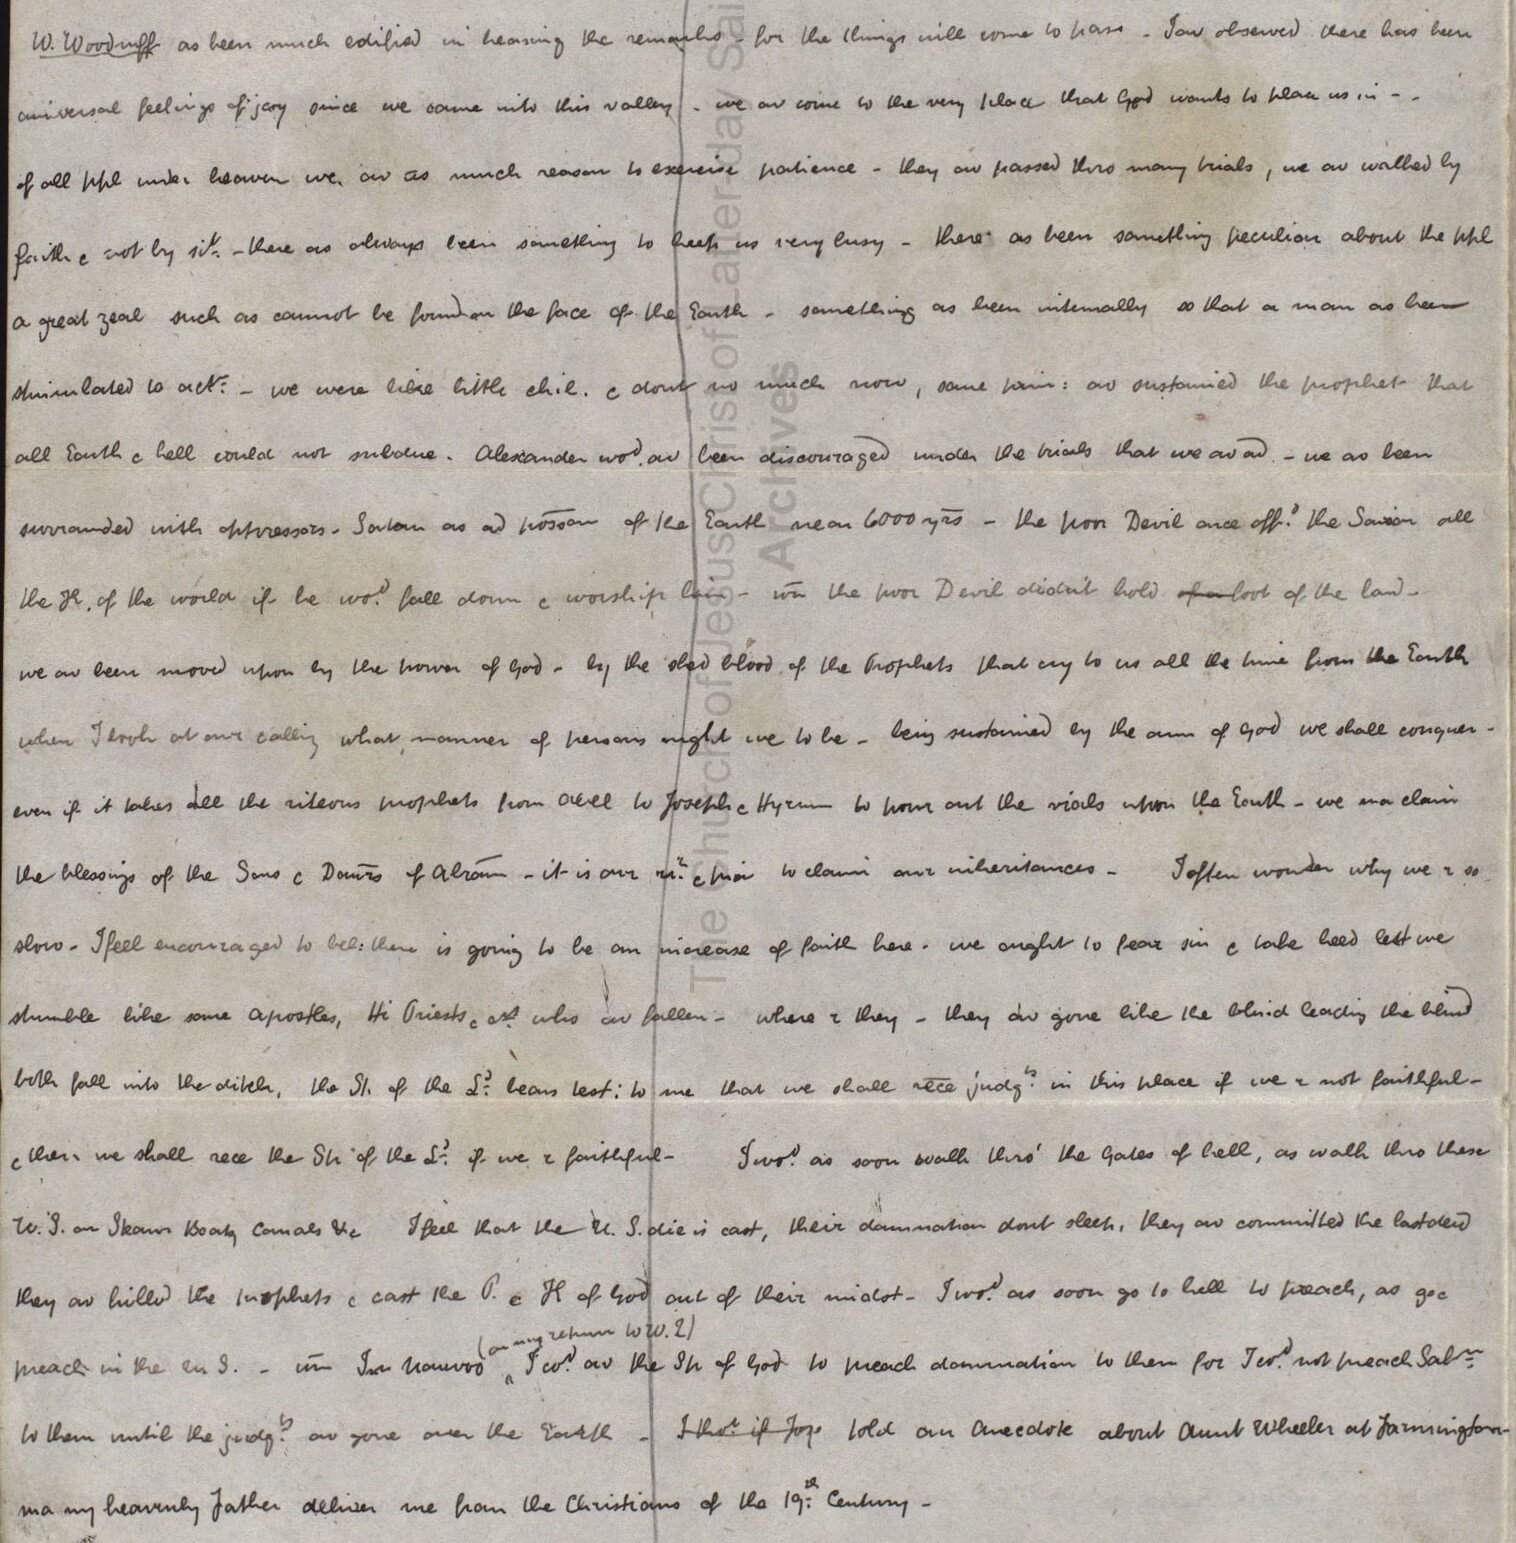 W. Woodruff as been much edified in hearing the remarks - for the things will come to pass - I av observed there has been
universal feelings of joy since we came into this valley - we av come to the very place that God wants to place us in - -
of all ppl under heaven we av as much reason to exercise patience - they av passed thro many trials, we av walked by
faith & not by sit. - there as always been something to keep us very busy - there as been something peculiar about the ppl
a great zeal such as cannot be found on the face of the Earth - something as been internally so that a man as been
stimulated to actn: - we were like little chil. & dont no much now, same prin: av sustained the prophet that
all Earth & hell could not subdue. Alexander wod. av been discouraged under the trials that we av ad - we av been
surrounded with oppressors - Satan as ad posson of the Earth near 6000 yrs - the poor Devil once offd. the Savior all
the K. of the world if he wod. fall down & worship him - wn the poor Devil didn't hold of a foot of the land -
we av been moved upon by the power of God - by the shed blood of the Prophets that cry to us all the time from the Earth
when I look at our calling what manner of persons ought we to be - being sustained by the arm of God we shall conquer -
even if it takes all the riteous prophets from Abel to Joseph & Hyrum to pour out the vials upon the Earth - we ma claim
the blessings of the Sons & Daurs of Abram - it is our rit. & priv to claim our inheritances - I often wonder why we r so
slow - I feel encouraged to bel: there is going to be an increase of faith here - we ought to fear sin & take heed lest we
stumble like some apostles, Hi Priests & ors. who av fallen - where r they - they av gone like the blind leading the blind
both fall into the ditch, the Sp. of the Ld. bears test: to me that we shall rece judgts. in this place if we r not faithful -
& then we shall rece the Sp of the Ld. if we r faithful - I wod. as soon walk thro' the Gates of hell, as walk thro these
U. S. on Steam Boats, Canals &c I feel that the U. S. die is cast, their damnation dont sleep, they av committed the last deed
they av killd the prophets & cast the P. & K of God out of their midst - I wod. as soon go to hell to preach, as go &
preach in the U. S. - wn I in Nauvoo (on my return to W. Q) I cod. av the Sp of God to preach damnation to them for I cod. not preach Salvn.
to them until the judgts. av gone over the Earth - I thot. if Jos told an Anecdote about Aunt Wheeler at Farmington -
ma my heavenly Father deliver me from the Christians of the 19th. Century -
The Church of Jesus Christ of Latter-day Sai
Archives